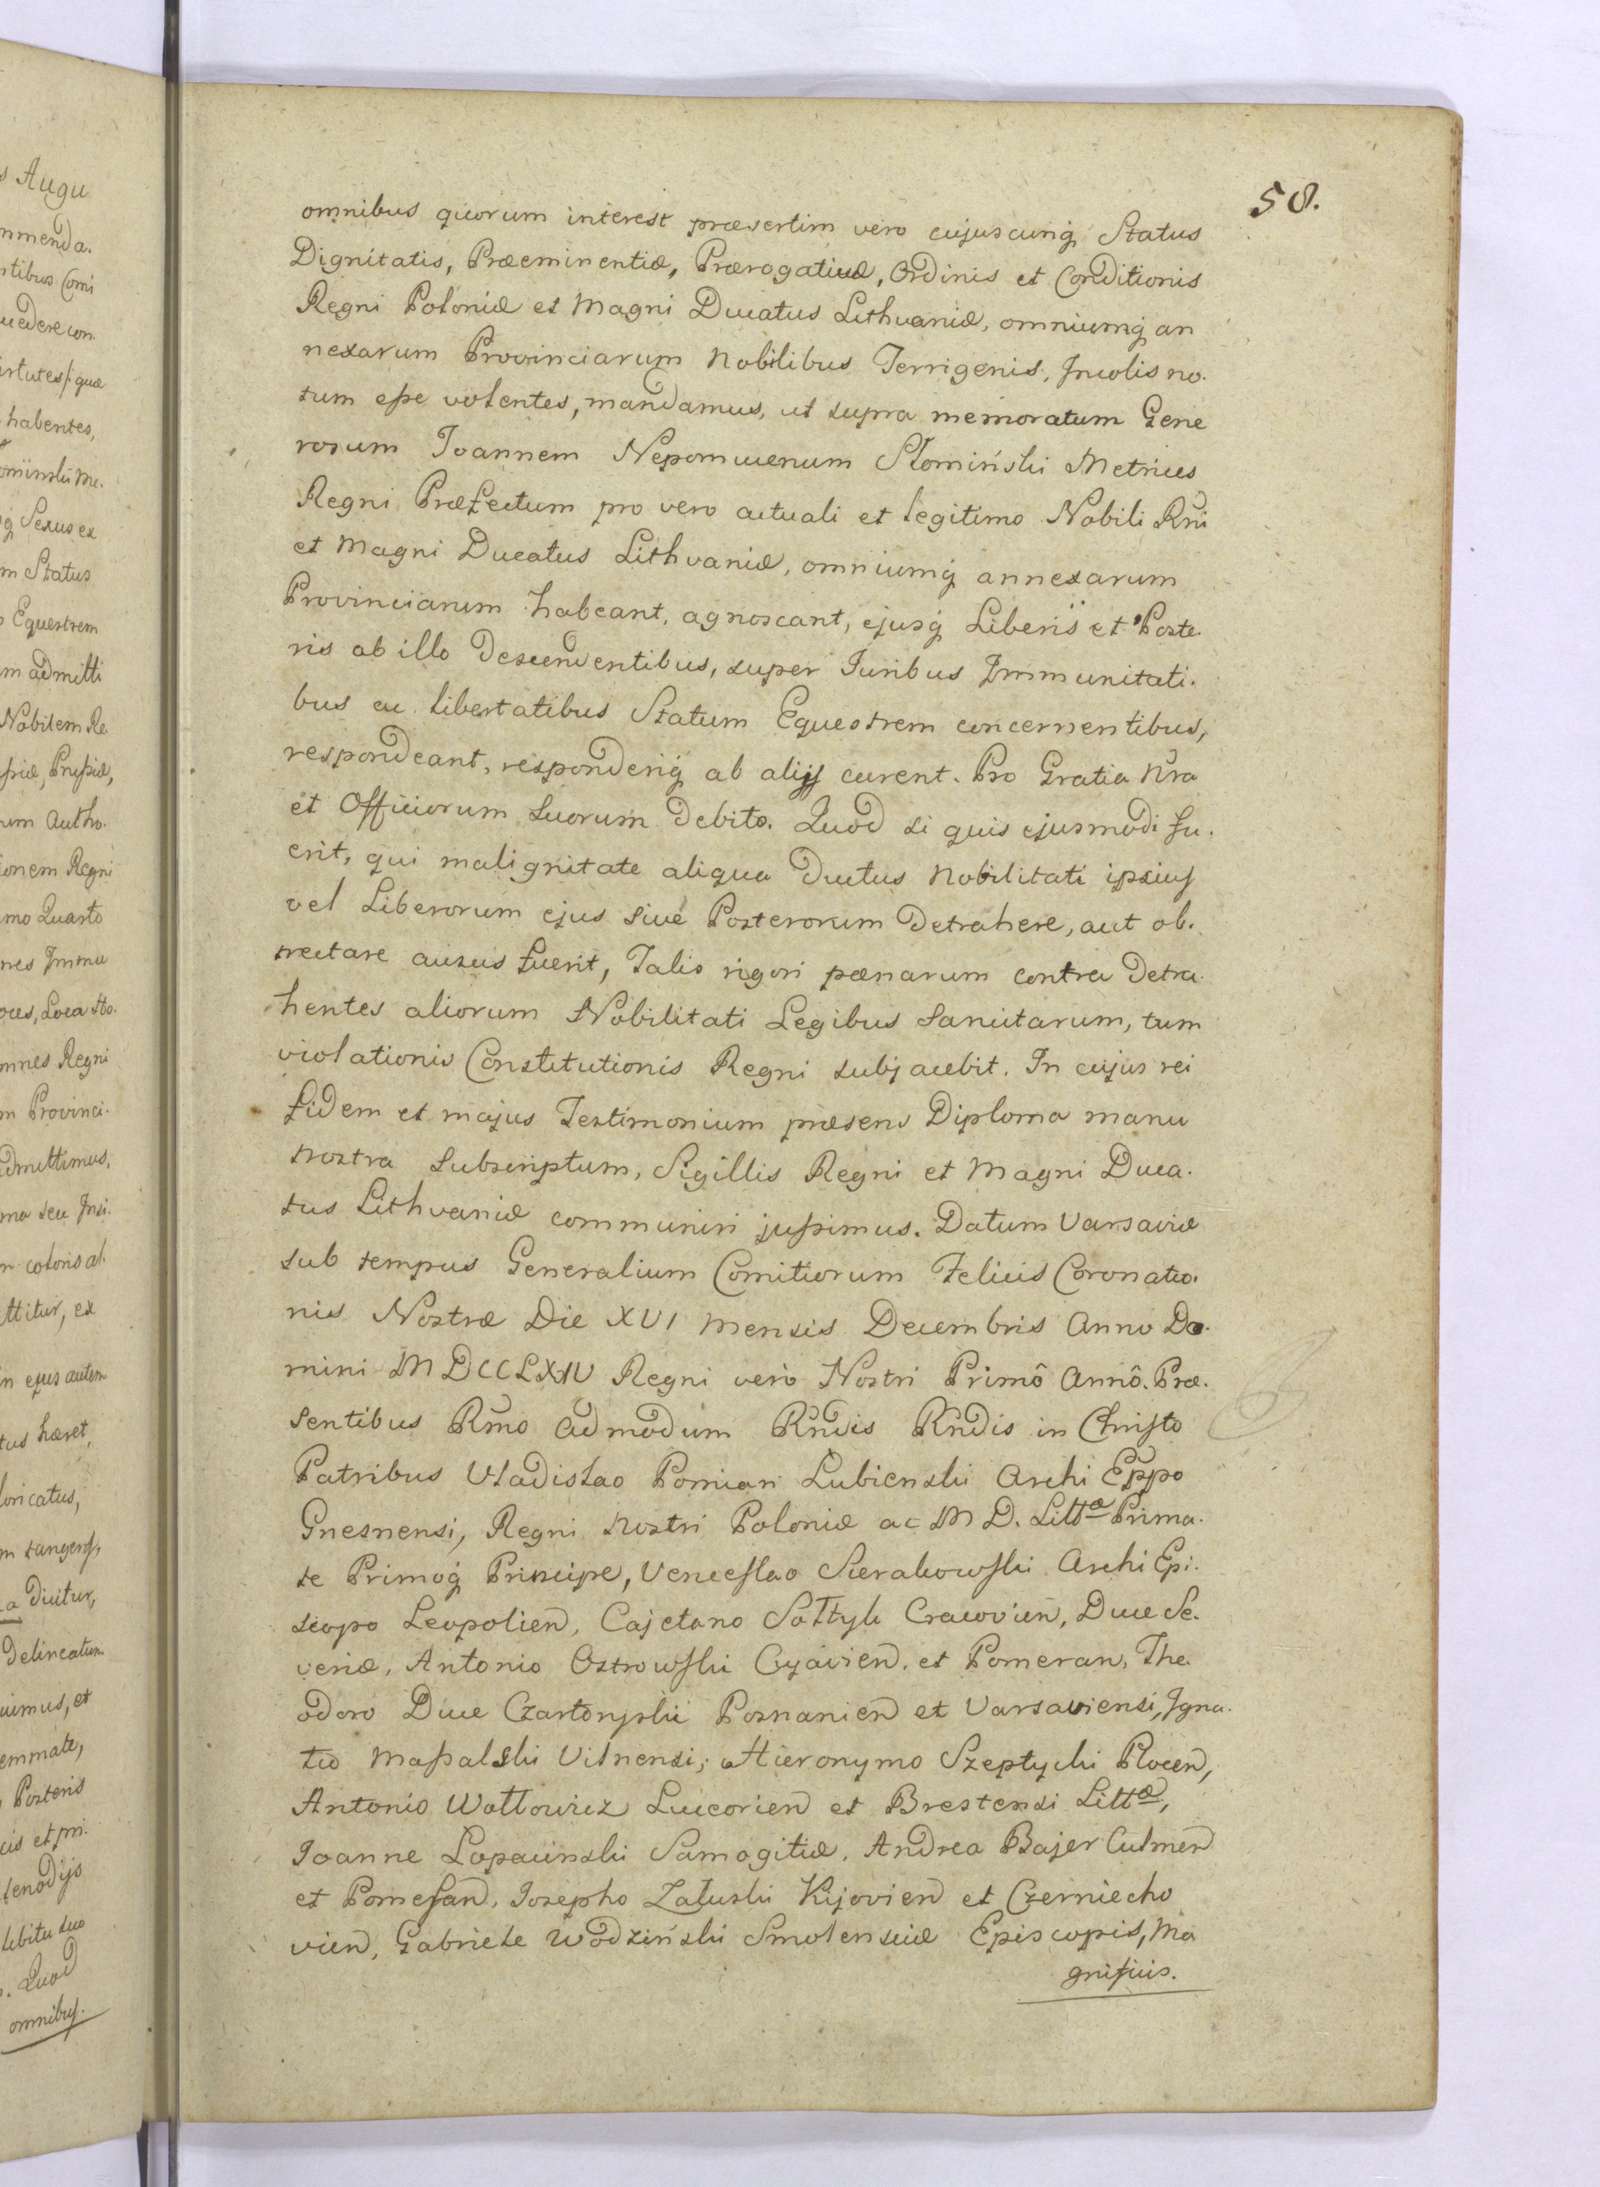 58.
omnibus quorum interest præsertim vero cujuscunq, Status
Dignitatis, Præeminentiæ, Prærogativæ, Ordinis et Conditionis
Regni Poloniæ et Magni Ducatus Lithvaniæ, omniumq, an
nexarum Provinciarum Nobilibus Terrigenis, Incolis no.
tum eße volentes, mandamus, ut supra memoratum Gene
rosum Joannem Nepomucenum Słomiński Metrices
Regni Præfectum pro vero actuali et legitimo Nobili Rni
et Magni Ducatus Lithvaniæ, omniumq, annexarum
Provinciarum habeant, agnoscant, ejusq, Liberis et Poste.
ris ab illo Descendentibus, super Juribus Immunitati.
bus ac libertatibus Statum Equestrem concernentibus,
respondeant, responderiq, ab alijs curent. Pro Gratia Nra
et Officiorum suorum Debito. Quod si quis ejusmodi fu.
erit, qui malignitate aliqua Ductus Nobilitati ipsius
vel Liberorum ejus sive Posterorum Detrahere, aut ob.
trectare ausus fuerit, Talis rigori pænarum contra Detra.
hentes aliorum Nobilitati Legibus sancitarum, tum
violationis Constitutionis Regni subjacebit. In cujus rei
fidem et majus Testimonium præsens Diploma manu
Nostra subscriptum, Sigillis Regni et Magni Duca.
tus Lithvaniæ communiri jußimus. Datum Varsaviæ
sub tempus Generalium Comitiorum Felicis Coronatio.
nis Nostræ Die XVI Mensis Decembris Anno Do.
mini MDCCLXIV Regni verò Nostri Primô Annô. Præ.
sentibus Rmo Admodum Rndis Rndis in Christo
Patribus Vladislao Pomian Lubienski Archi Eppo
Gnesnensi, Regni Nostri Poloniæ ac M D. Littæ Prima.
te Primoq, Principe, Venceslao Sierakowski Archi Epi.
scopo Leopolien, Cajetano Sołtyk Cracovien, Duce Se.
veriæ, Antonio Ostrowski Cujavien. et Pomeran, The.
odoro Duce Czartoryskii Posnanien et Varsaviensi, Igna.
tio Maßalski Vilnensi; Hieronymo Szeptycki Plocen,
Antonio Wołłowicz Luceorien et Brestensi Littæ,
Joanne Lopacinski Samogitiæ, Andrea Bajer Culmen
et Pomesan, Josepho Załuski Kijovien et Czerniecho
vien, Gabriele Wodziński Smolensciæ Episcopis, Ma
gnificis.